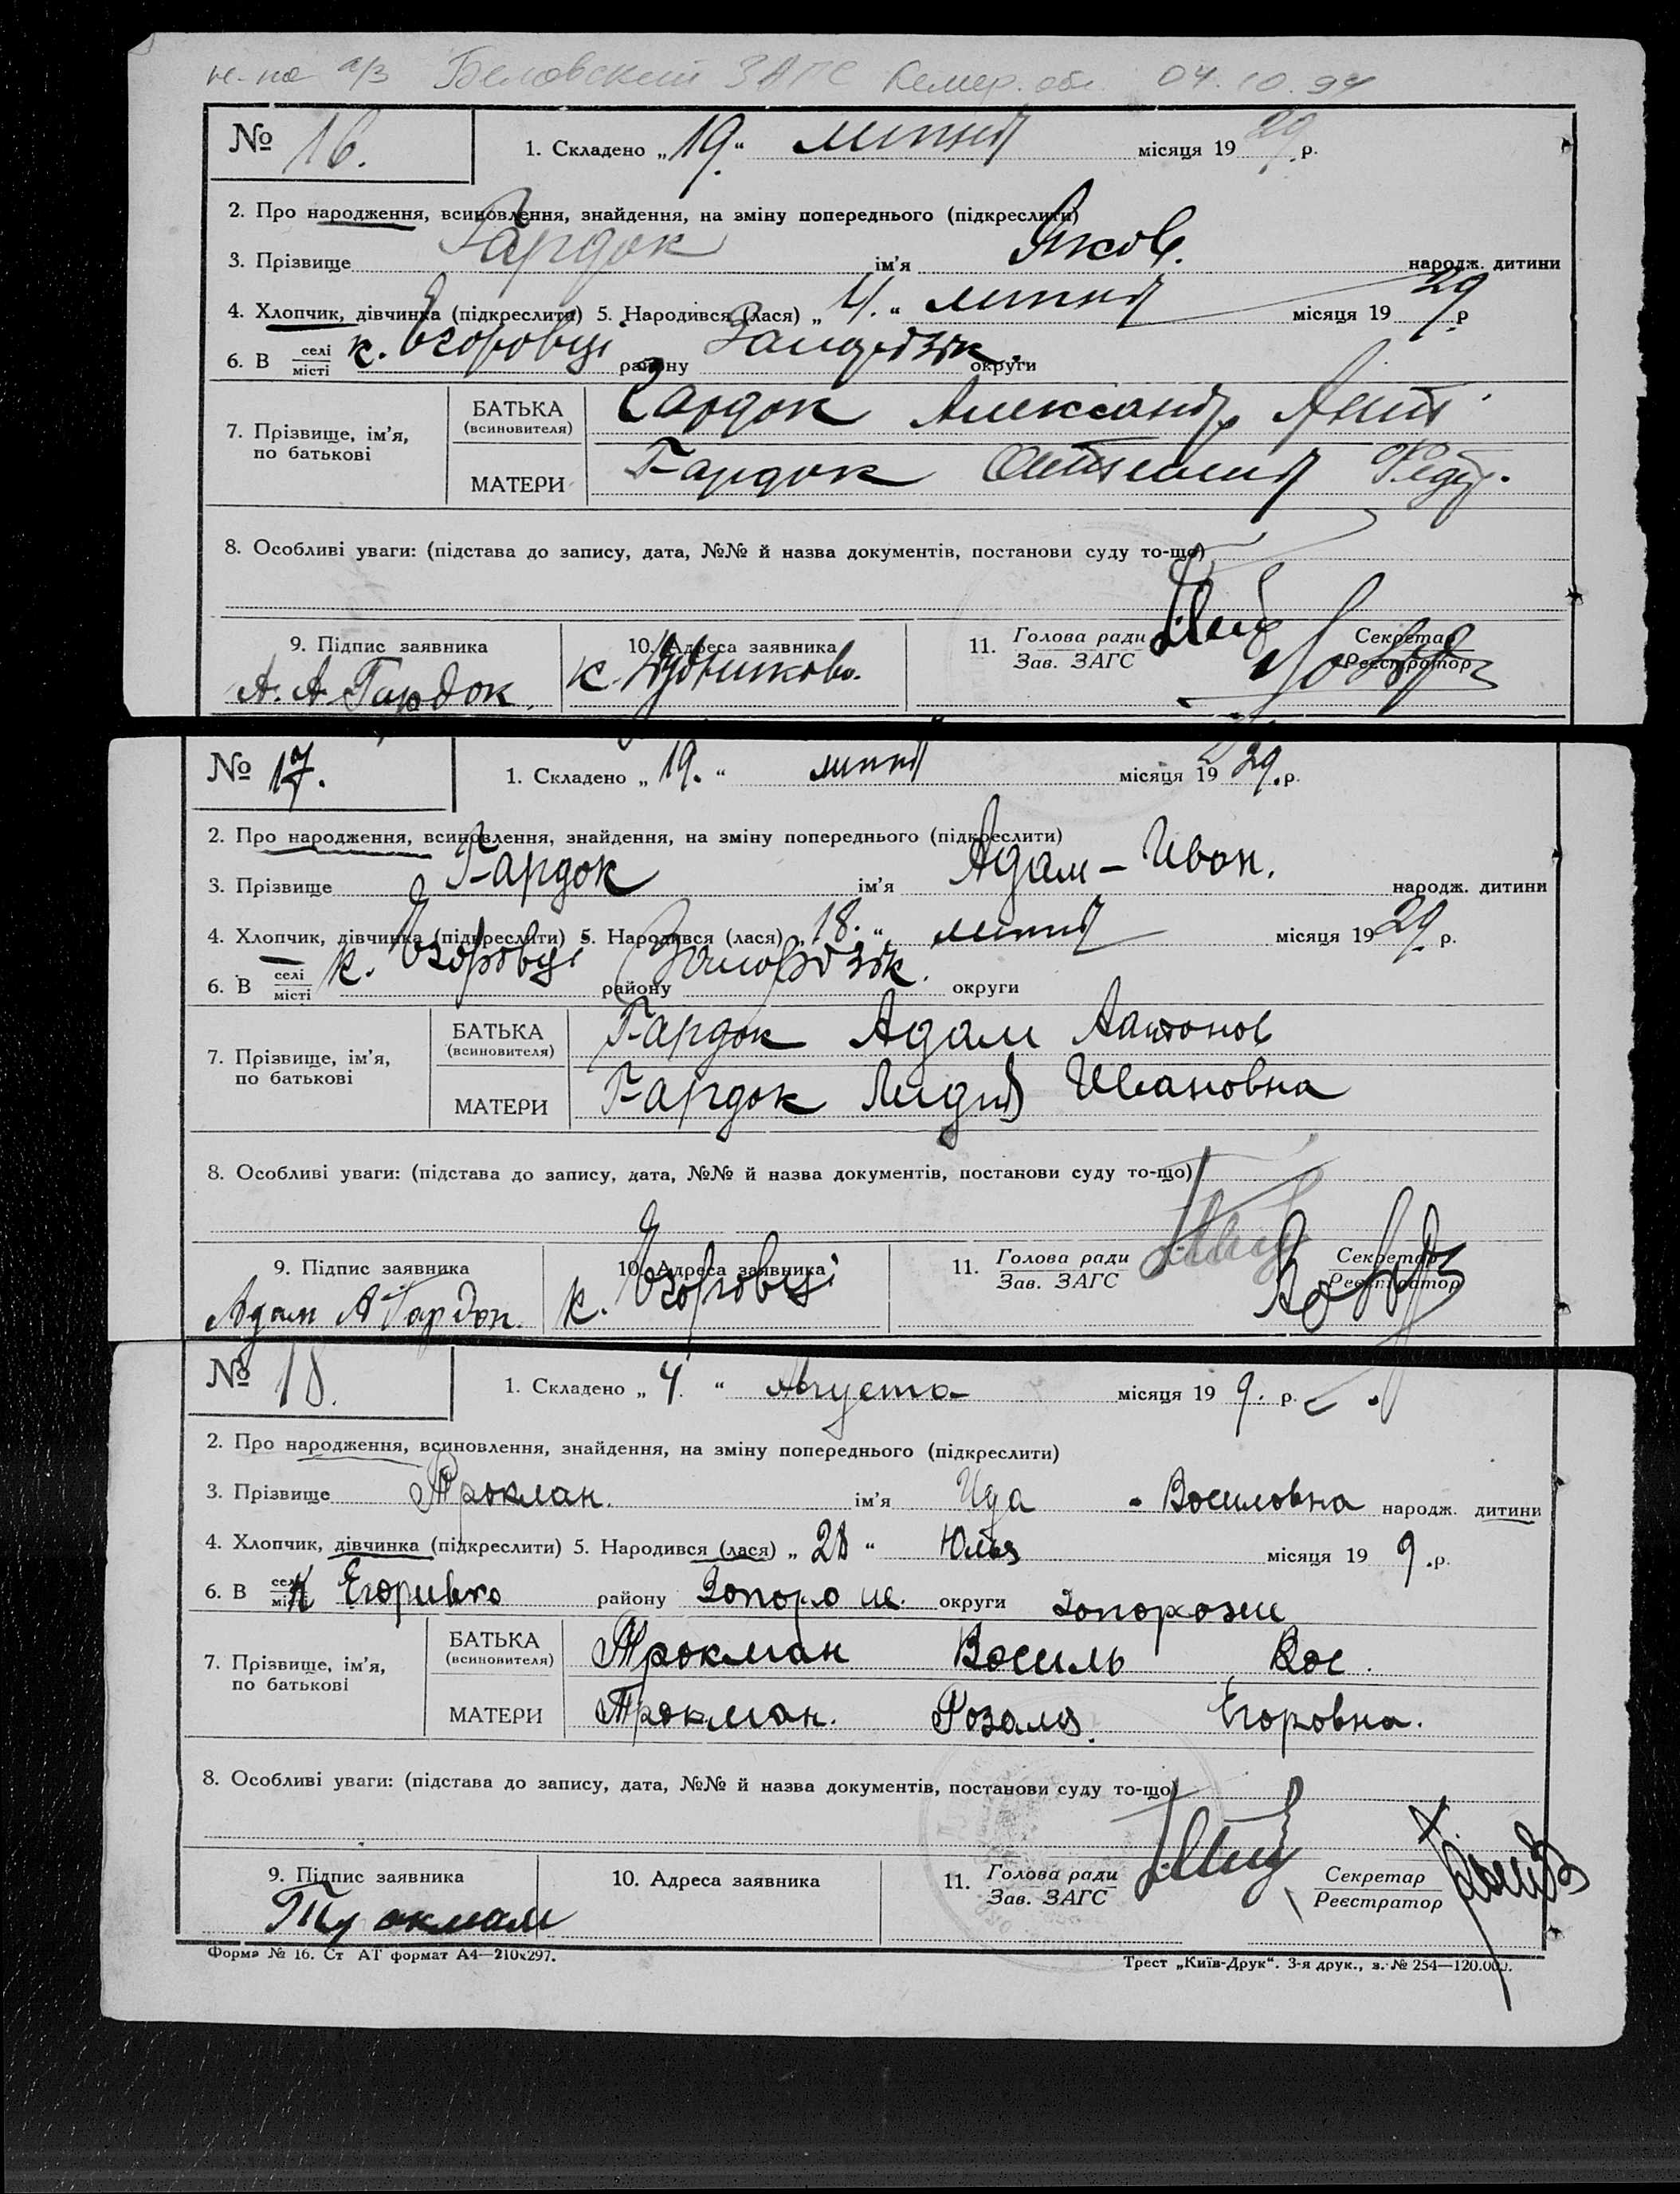 Беловский ЗАГС Кемер. обл. 04.10.94
№ 16. 1. Складено „19.“ липня місяця 19 29 р.
2. Про народження, всиновлення, знайдення, на зміну попереднього (підкреслити)
3. Прізвище Гардок ім'я Яков. народж. дитини
4. Хлопчик, дівчинка (підкреслити) 5. Народився (лася) „ 4. “ липня місяця 19 29 р
6. В селі місті к. району округи
7. Прізвище, ім'я, по батькові
БАТЬКА (всиновителя) Гардок Александр Ант
МАТЕРИ Гардок Федор.
8. Особливі уваги: (підстава до запису, дата, №№ й назва документів, постанови суду то-що)
9. Підпис заявника 10. Адреса заявника 11. Голова ради Зав. ЗАГС Секретар Реєстратор
А. А. Гардок. к.
№ 17. 1. Складено „ 19. “ липня місяця 19 29. р.
2. Про народження, всиновлення, знайдення, на зміну попереднього (підкреслити)
3. Прізвище Гардок ім'я Адам – Ивон. народж. дитини
4. Хлопчик, дівчинка (підкреслити) 5. Народився (лася) „ 18. “ липня місяця 19 29 р.
6. В селі місті к. району округи
7. Прізвище, ім'я, по батькові
БАТЬКА (всиновителя) Гардок Адам Антонов
МАТЕРИ Гардок Лидия Ивановна
8. Особливі уваги: (підстава до запису, дата, №№ й назва документів, постанови суду то-що)
9. Підпис заявника 10. Адреса заявника 11. Голова ради Зав. ЗАГС Секретар Реєстратор
Адам А Гардок. к.
№ 18. 1. Складено „ 4. “ Августа місяця 19 9. р.
2. Про народження, всиновлення, знайдення, на зміну попереднього (підкреслити)
3. Прізвище Трокман. ім'я Ида - Восиловна народж. дитини
4. Хлопчик, дівчинка (підкреслити) 5. Народився (лася) „ 28 “ Юлья місяця 19 9 .р.
6. В селі місті К Егоривко району Зопоро округи Зопорожи
7. Прізвище, ім'я, по батькові
БАТЬКА (всиновителя) Трокман Восиль Вос.
МАТЕРИ Трокман. Розаля. Егоровна.
8. Особливі уваги: (підстава до запису, дата, №№ й назва документів, постанови суду то-що)
9. Підпис заявника 10. Адреса заявника 11. Голова ради Зав. ЗАГС Секретар Реєстратор
Форма № 16. Ст АТ формат А4—210x297. Трест „Київ-Друк“. 3-я друк., з. № 254—120.000.